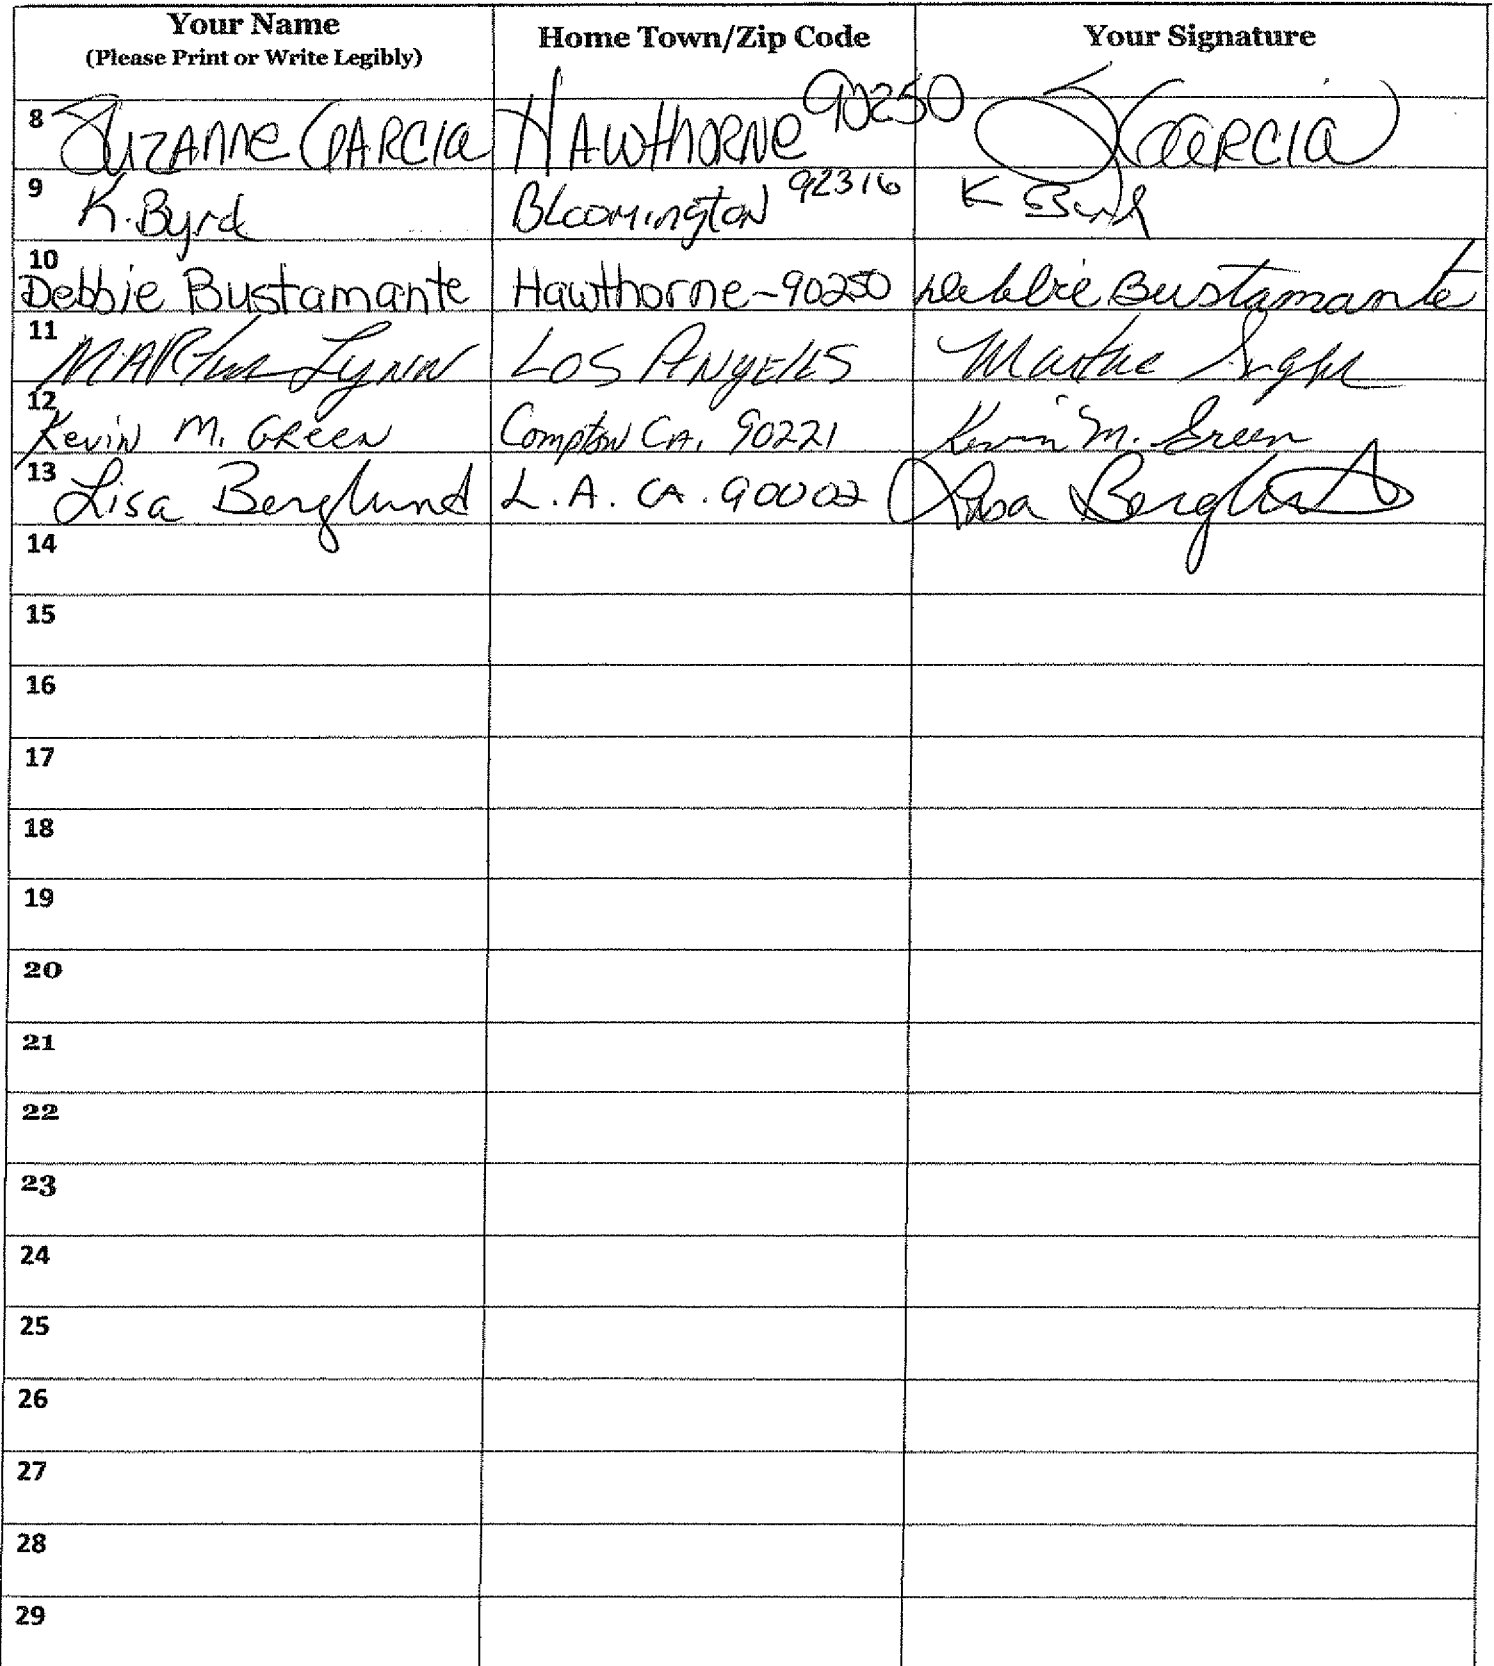 Your Name Home Town/Zip Code Your Signature
(Please Print or Write Legibly)
8 Suzanne Garcia Hawthorne 90250 S Garcia
9 K. Byrd Bloomington 92316 K Byrd
10 Debbie Bustamante Hawthorne-90250 Debbie Bustamante
11 Martha Lynn Los Angeles Martha
12 Kevin M. Green Compton CA. 90221 Kevin M. Green
13 Lisa Berglund L.A. CA. 90002 Lisa Berglund
14
15
16
17
18
19
20
21
22
23
24
25
26
27
28
29